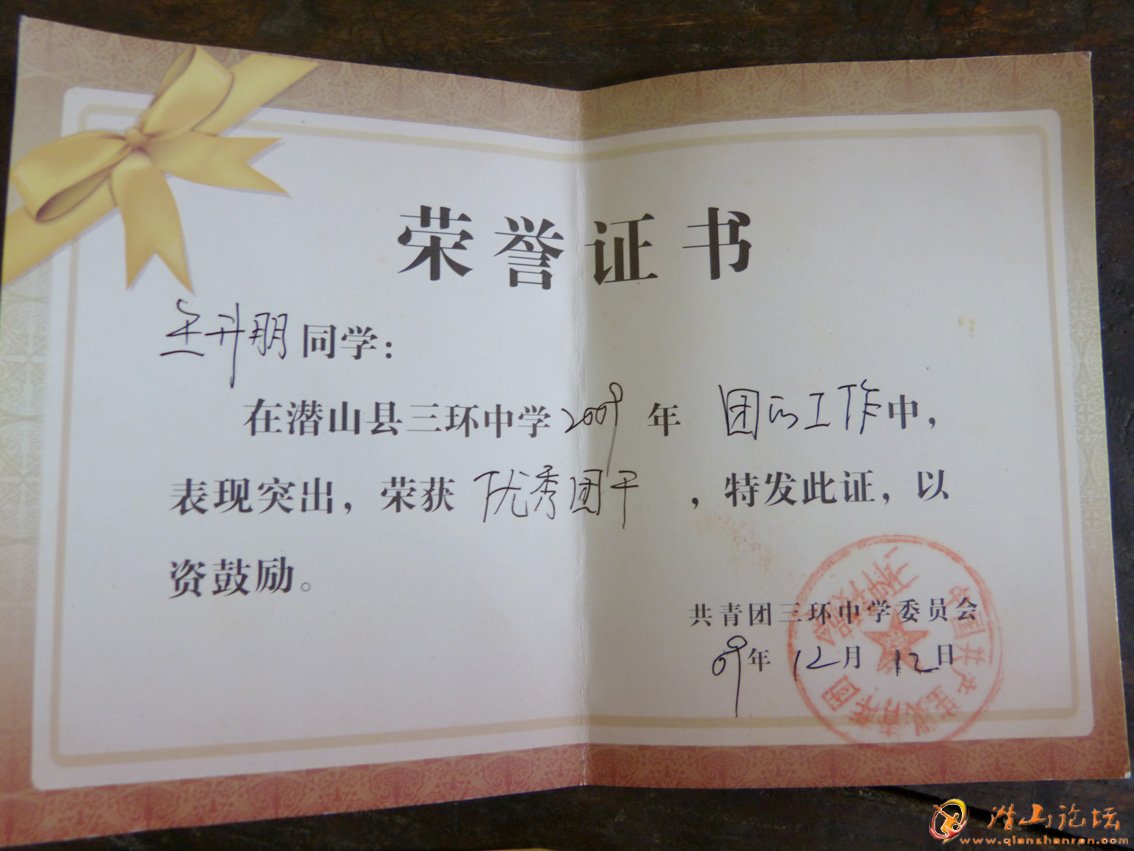 荣誉证书
王升朋同学：
在潜山县三环中学2009年 团的工作中，
表现突出，荣获 优秀团干 ，特发此证，以
资鼓励。
共青团三环中学委员会
09年 12月 12日
中国共产主义青年团
潜山论坛
www.qianshanren.com